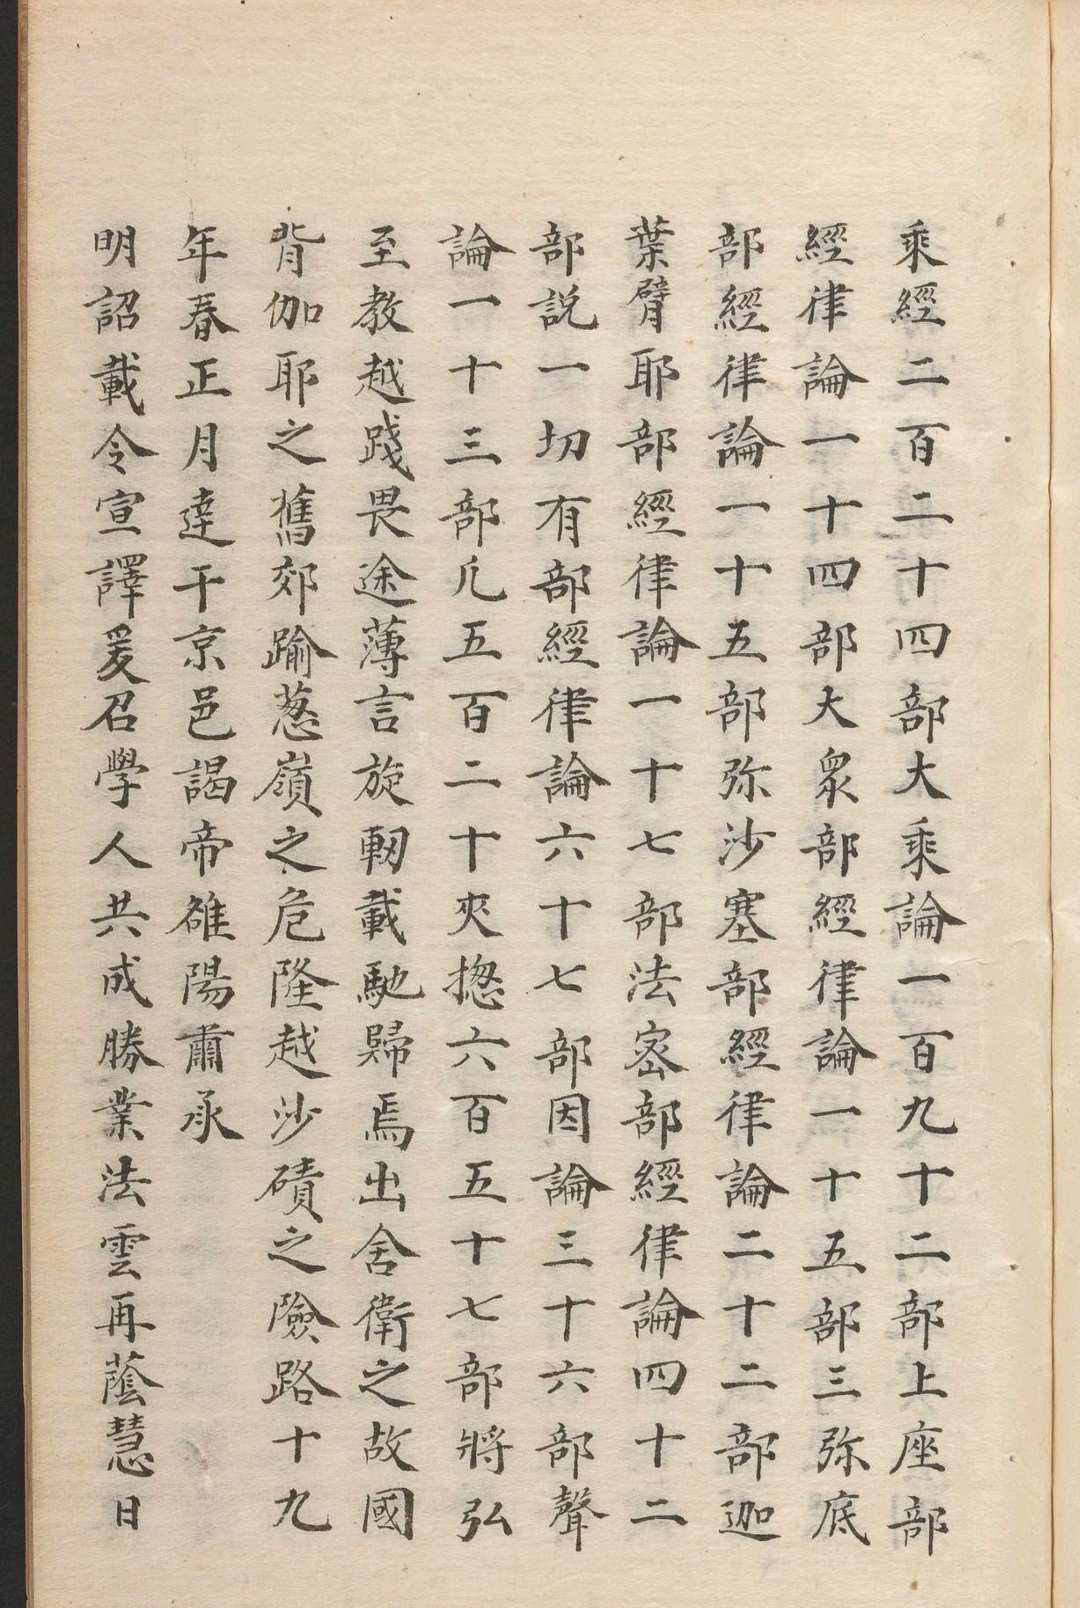 乘經二百二十四部大乘論一百九十二部上座部
經律論一十四部大衆部經律論一十五部三弥底
部經律論一十五部弥沙塞部經律論二十二部迦
葉臂耶部經律論一十七部法密部經律論四十二
部説一切有部經律論六十七部因論三十六部聲
論一十三部凡五百二十夾揔六百五十七部將弘
至教越踐畏途薄言旋軔載馳歸焉出舍衛之故國
背伽耶之舊郊踰葱嶺之危隆越沙磧之險路十九
年春正月達于京邑謁帝雒陽肅承
明詔載令宣譯爰召學人共成勝業法雲再蔭慧日